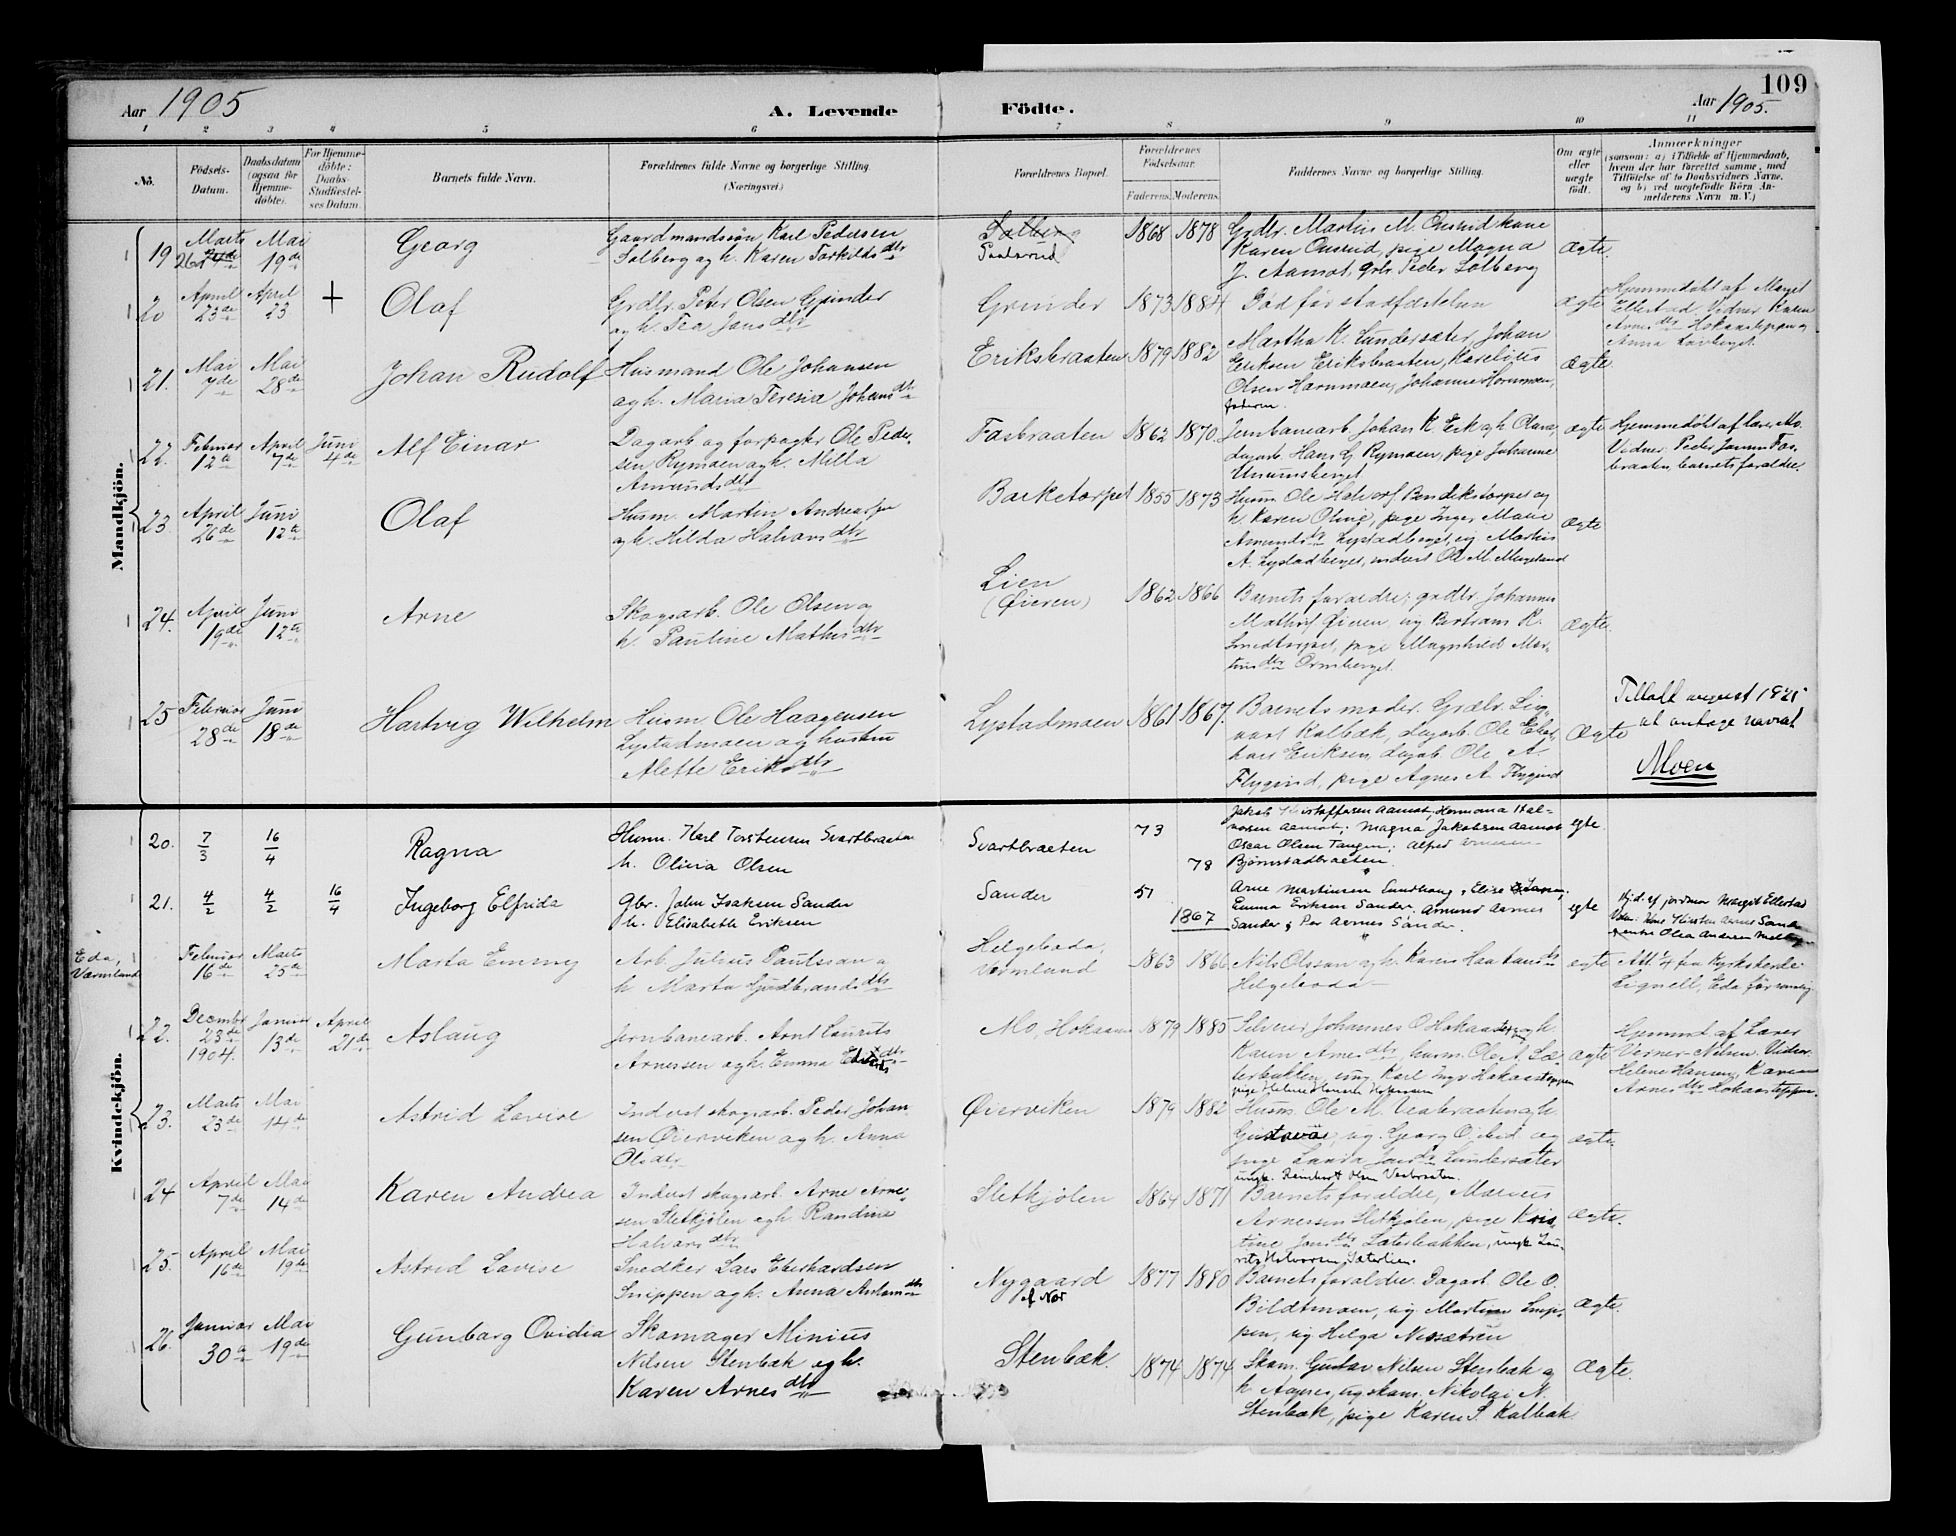 109
Aar 1905 A. Levende Födte. Aar 1905.
1 2 3 4 5 6 7 8 9 10 11
No.
Födsels-Datum.
Daabsdatum (ogsaa for Hjemmedöbte).
For Hjemmedöbte: Daabs-Stadfæstelses Datum.
Barnets fulde Navn.
Forældrenes fulde Navne og borgerlige Stilling.
(Næringsvei.)
Forældrenes Bopæl.
Forældrenes Födselsaar.
Faderens. Moderens.
Faddernes Navne og borgerlige Stilling.
Om ægte eller uægte födt.
Anmærkninger
(saasom: a) i Tilfælde af Hjemmedaab, hvem der har forrettet samme, med Tilföielse af to Daabsvidners Navne, og b) ved uægtefödte Börn Anmelderens Navn m. V.)
Mandkjön.
19 Marts 26de Mai 19de
Georg
Gaardmandssøn Karl Pedersen
Solberg og h. Karen Torkildsdtr
Solberg
Paalsrud
1868 1878
Grdbr. Martin M. Onsrud kone
Karen Onsrud, pige Magna
J. Aamot, grbr Peder Solberg
Ægte.
20 April 23de April 23 +
Olaf
Grdbr. Peter Olsen Grinder
og h. Tea Jensdtr
Grinder
1873 1884
Død før stadfæstelsen
Ægte
Hjemmedøbt af Marget
Ellestad. Vidner Karen
Arnesdtr Hokaasteppen og
Anna Løvberget
21. Mai 7de Mai 28de
Johan Rudolf
Husmand Ole Johansen
og h. Maria Teresia Johansdtr
Eriksbraaten
1879 1882
Martha K. Lundersæter, Johan
Eriksen Eriksbraaten, Karelius
Olsen Hornmoen, Johanne Hornmoen,
faderen.
Ægte.
22. Februar 12te April 7de Juni 4de
Alf Einar
Dagarb. og forpagter Ole Peder-
sen Rymoen og h. Milla
Amundsdtr
Fasbraaten
1862 1870.
Jernbanearb. Johan K. Eck og h. Olava,
dagarb. Hans G. Rymoen, pige Johanne
Ægte
Hjemmedøbt af lærer Mo.
Vidner Peder Jansen Fas-
braaten, barnets forældre.
23 April 26de Juni 12te
Olaf
Husm. Martin Andreas
og h. Hilda Halvorsdtr
Barketorpet
1855 1873
Husm. Ole Halvors. Bendikstorpet og
h. Karen Oline, pige Inger Marie
Amundsdtr Lystadberget, ug Martin
A. Lystadberget, inderst Ole M.
Ægte
24. April 19de Juni 12te
Arne
Skogsarb. Ole Olsen og
h. Pauline Mathisdtr
Lien
(Øieren)
1862 1866
Barnets forældre; grdbr. Johannes
Mathis. Øieren, ug Bertram R.
Smedtorpet, pige Magnhild Mar-
tinsdtr Ormberget.
Ægte.
25 Februar 28de Juni 18de
Hartvig Wilhelm
Husm. Ole Haagensen
Lystadmoen og hustru
Alette Eriksdtr
Lystadmoen
1861 1867.
Barnets moder. Grdbr. Sig-
vart Kalbæk, dagarb. Ole Eber-
hard Eriksen, dagarb. Ole A.
Flygind, pige Agnes A. Flygind
Ægte
Tillatt august 1925
at antage navnet
Moen
Kvindekjön.
20. 7/3 16/4
Ragna
Husm. Karl Torstensen Svartbraaten
h. Olivia Olsen
Svartbraaten
73
78
Jakob Kristoffersen Aamot, Hermana Hal-
vorsen Aamot; Magna Jakobsen Aamot
Oscar Olsen Tangen; Alfred Arnesen
Bjørnstadbraaten.
egte
21. 4/2 4/2 16/4
Ingeborg Elfrida
Gbr. John Isaksen Sander
h. Elisabeth Eriksen
Sander
51
1867
Arne Martinsen Lundhaug, Elise
Emma Eriksen Sander. Amund Arnes
Sander; Per Arnes Sander.
egte
Hj.d. af jordmor Margit Ellestad
Eda,
Værmland
Februar 16de Marts 25de
Marta Emmy
Arb. Julius Paulsson og
h. Marta Gudbrandsdtr
Helgeboda,
Vermland
1863 1866
Nils Olsson og h. Karen Haakansdtr
Helgeboda
ægte
Att. 1/4 fra Kyrkoherde
Lignell, Eda församling
22. December 23de 1904. Januar 13de April 21de
Aslaug
Jernbanearb. Arnt Laurits
Arnessen og h. Emma Edvardsdtr
Mo, Hokaasen
1879 1885
Selveier Johannes O Hokaasteppen og h.
Karen Arnesdtr, husm. Ole A. Sæ-
terbakken, ung. Karl Ingv. Hokaasteppen
Ægte
Hjemmd. af Lærer
Verner-Nielsen. Vidner
Helene Hansen, Karen
Arnesdtr Hokaasteppen.
23. Marts 23de Mai 14de
Astrid Lovise
Inderst skogsarb. Peder Johan-
sen Øierviken og h. Anna
Olsdtr
Øierviken
1879 1882
Husm. Ole M. Vestbraaten og h.
Gustava, ug. Georg O. Eid og
pige Laura Jonsdtr Lundersæter
ungk. Reinhart Olsen Vestbraaten.
ægte.
24 April 7de Mai 14de
Karen Andrea
Inderst skogsarb. Arne Arne-
sen Sletkjølen og h. Randine
Halvorsdtr
Sletkjølen
1864 1871
Barnets forældre, Marius
Arnessen Sletkjølen, pige Kris-
tine Jonsdtr Sæterbakken, ungk. Lau-
rits Halvorsen Sæterlien.
Ægte.
25. April 16de Mai 19de
Astrid Lovise
Snedker Lars Eberhardsen
Snippen og h. Anna Antonsdtr
Nygaard
af Nor
1877 1880
Barnets forældre. Dagarb. Ole O.
Bildtmoen, ug Martin Snip-
pen, ug Helga Næssetren
Ægte.
26. Januar 30te Mai 19de
Gunborg Ovidia
Skomager Minius
Nilsen Stenbæk og h.
Karen Arnesdtr
Stenbæk.
1874 1874
Skom. Gustav Nilsen Stenbæk og
h. Agnes, ug skom. Nikolai N.
Stenbæk, pige Karen S. Kalbæk
Ægte.